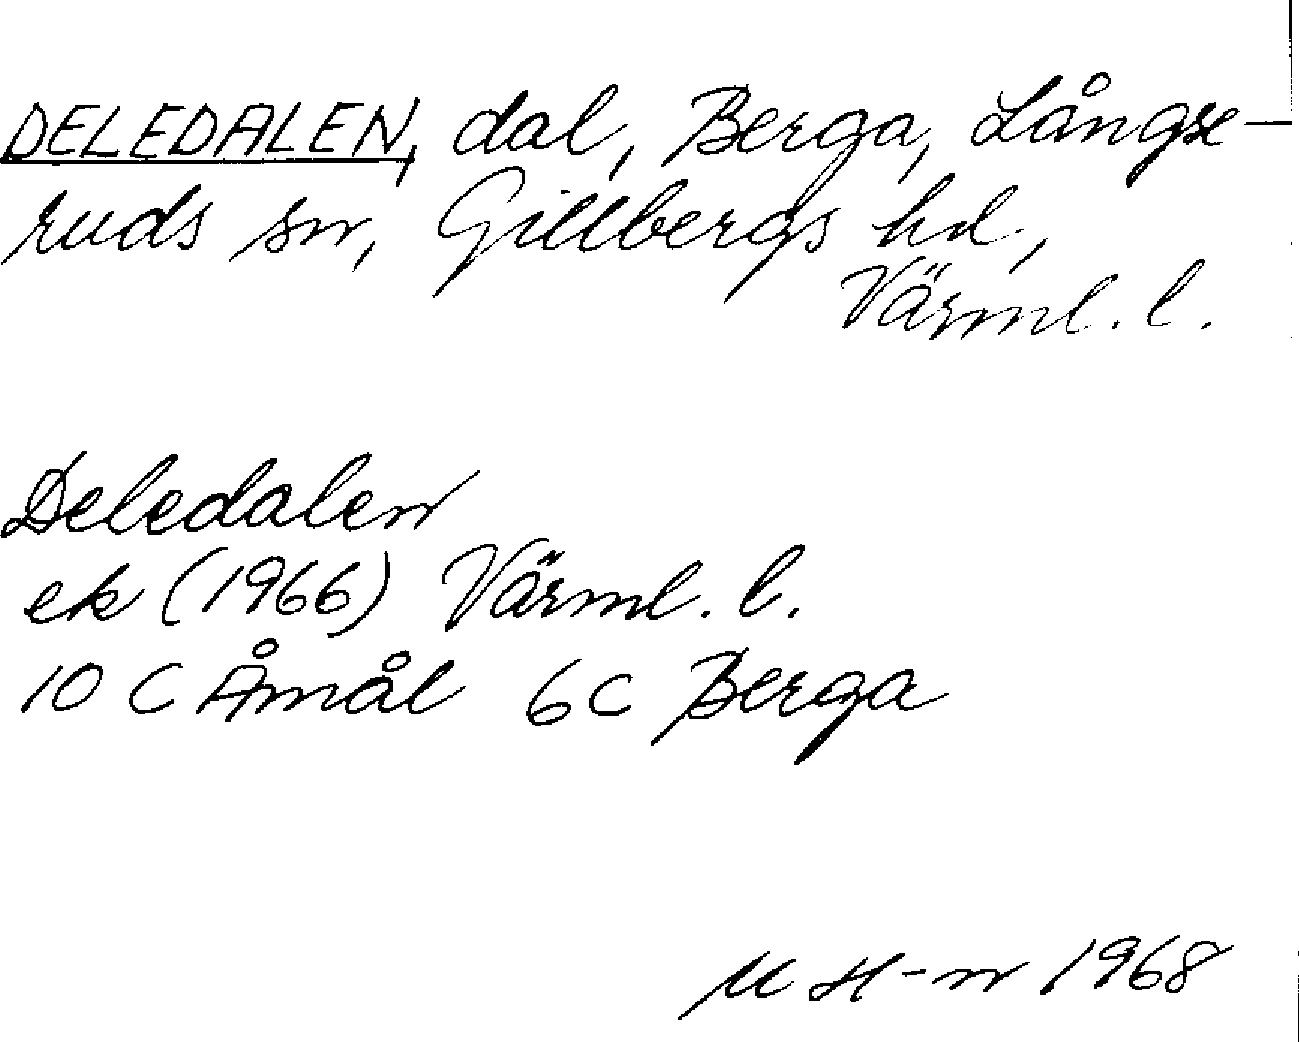 DELEDALEN, dal, Berga, Långse-
ruds sn, Gillbergs hd,
Värml. l.
Deledalen
ek (1966) Värml. l.
10 C Åmål 6c Berga
M H-n 1968